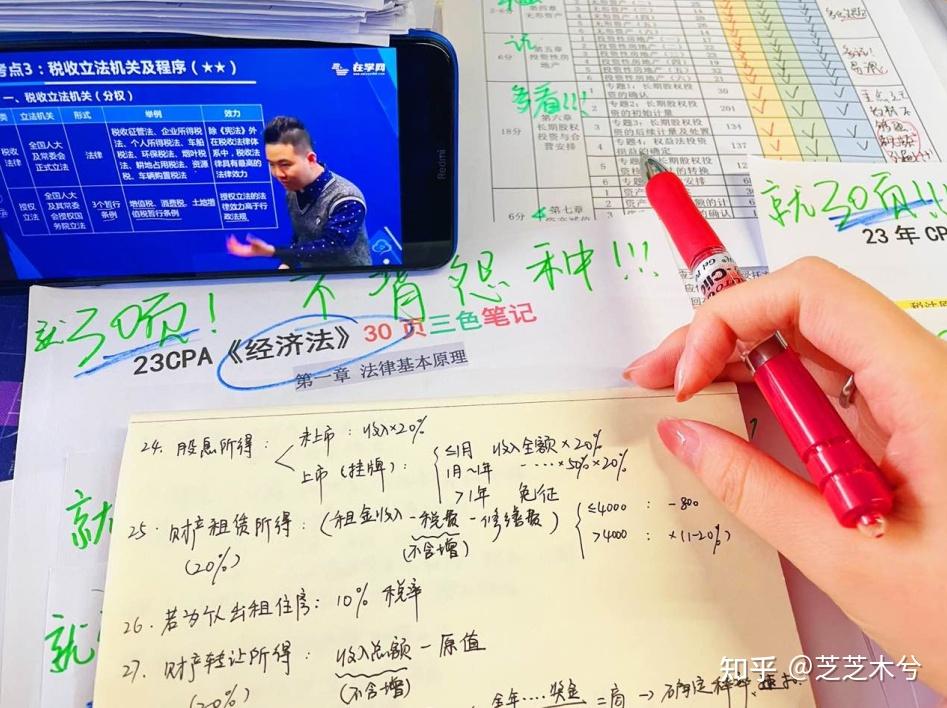 考点3：税收立法机关及程序（★★）
在学网
一、税收立法机关（分权）
立法机关 形式 举例 效力
税收法律 全国人大及常委会正式立法 法律 税收征管法、企业所得税法、个人所得税法、车船税法、环保税法、烟叶税法、耕地占用税法、资源税、车辆购置税法 除《宪法》外在税收法律体系中，税收法律具有最高的法律效力
授权立法 全国人大及其常委会授权国务院立法 3个暂行条例 增值税、消费税、土地增值税暂行条例 授权立法的法律效力高于行政法规
无形资产
6分 第五章 投资性房地产
投资性房地产（一）
投资性房地产（二）
投资性房地产（三）
投资性房地产（四）
投资性房地产（五）
多看!!!
18分 第六章 长期股权投资与合营安排
1 专题1：长期股权投资的确认 30
2 专题2：长期股权投资的初始计量 201
3 专题3：长期股权投资的后续计量及处置 134
4 专题4：权益法投资损益的确定 137
6分 第七章
就30页!!!
23年CP
就30页！ 不背怨种!!!
23CPA《经济法》30页三色笔记
第一章 法律基本原理
24. 股息所得：
未上市：收入×20%
上市（挂牌）：
≤1月 收入全额×20%
1月~1年 ‥‥×50%×20%
>1年 免征
25. 财产租赁所得：（租金收入－税费－修缮费）
≤4000：-800
>4000：×(1-20%)
(20%) (不含增)
26. 若为个人出租住房：10% 税率
27. 财产转让所得：收入总额－原值
(20%) (不含增)
全年‥‥奖金
=商 →
就
就
知乎 @芝芝木兮